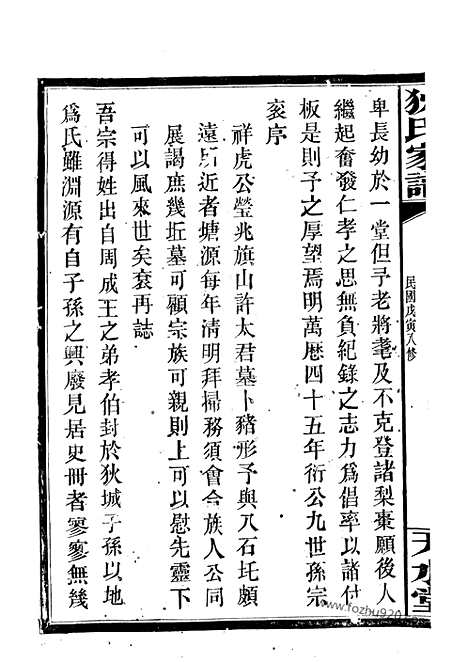 狄氏家譜
民國戊寅八修
天水堂
卑長幼於一堂但予老將耄及不克登諸梨棗願後人
繼起奮發仁孝之思無負紀錄之志力為倡率以諸付
板是則予之厚望焉明萬曆四十五年衍公九世孫宗
袞序
祥虎公瑩兆旗山許太君墓卜豬形予與人石圫頗
遠所近者塘源每年清明拜掃務須會合族人公同
展謁庶幾坵墓可顧宗族可親則上可以慰先靈下
可以風來世矣袞再誌
吾宗得姓出自周成王之弟孝伯封於狄城子孫以地
為氏雖淵源有自子孫之興廢見居史冊者寥寥無幾
www.fozhu920.com